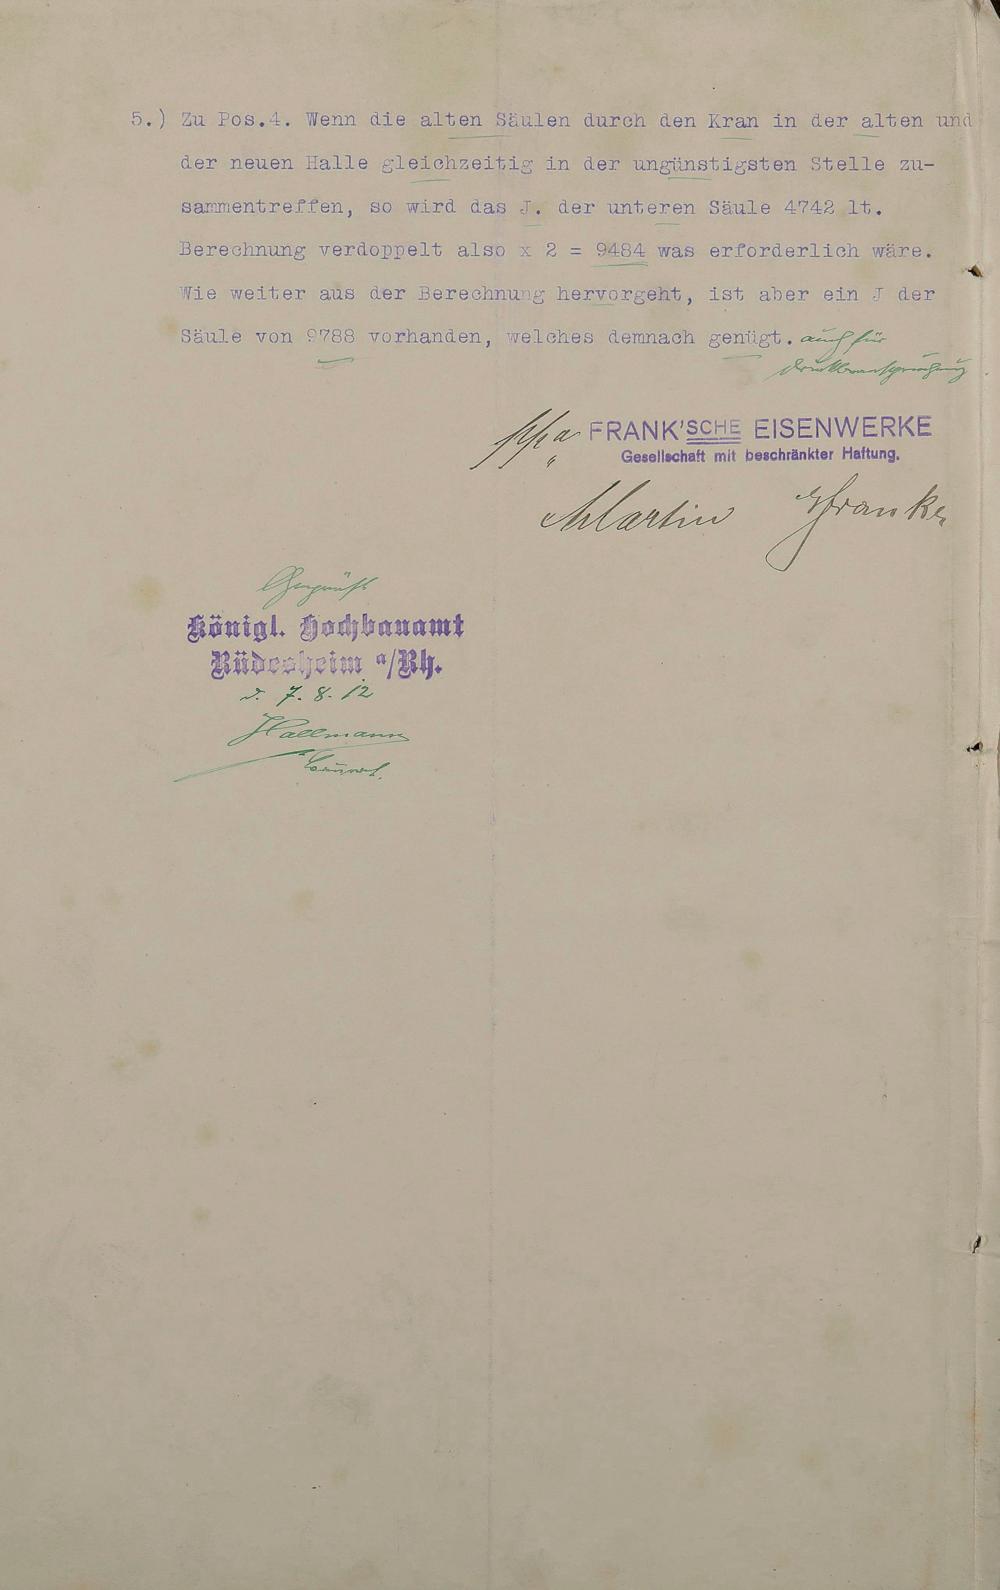 5.) Zu Pos.4. Wenn die alten Säulen durch den Kran in der alten und
der neuen Halle gleichzeitig in der ungünstigsten Stelle zu-
sammentreffen, so wird das J. der unteren Säule 4742 lt.
Berechnung verdoppelt also x 2 = 9484 was erforderlich wäre.
Wie weiter aus der Berechnung hervorgeht, ist aber ein J der
Säule von 9788 vorhanden, welches demnach genügt. auch für
Druckbeanspruchung
ppa FRANK'SCHE EISENWERKE
Gesellschaft mit beschränkter Haftung.
Martin Franke
Geprüft
Königl. Hochbauamt
Rüdesheim a/Rh.
d. 7. 8. 12
Hallmann
Baurat.